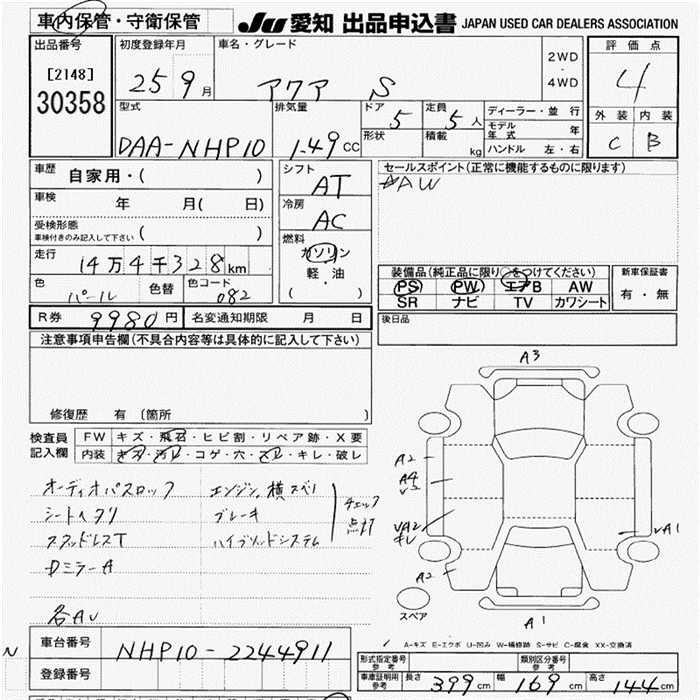 車内保管・守衛保管
JU 愛知 出品申込書 JAPAN USED CAR DEALERS ASSOCIATION
出品番号 初度登録年月 車名・グレード 2WD・4WD 評価点
[2148] 30358 25 9月 アクア S 4
型式 排気量 ドア 5 定員 5人 ディーラー・並行 外装 内装
DAA-NHP10 1.49cc 形状 積載 kg モデル年式 年 C B
ハンドル 左・右
車歴 自家用・( ) シフト AT セールスポイント(正常に機能するものに限ります)
AW
車検 年 月(日) 冷房 AC
受検形態 車検付きのみ記入して下さい ( )
燃料 ガソリン
走行 14万4千328km 軽・油
( )
装備品(純正品に限り○をつけてください) 新車保証書
色 パール 色替 色コード 082
PS PW エアB AW 有・無
SR ナビ TV カワシート
R券 9980円 名変通知期限 月 日 後日品
注意事項申告欄(不具合内容等は具体的に記入して下さい)
修復歴 有 〔箇所 〕
検査員記入欄 FW キズ・飛石・ヒビ割・リペア跡・X要
内装 キズ・汚れ・コゲ・穴・スレ・キレ・破レ
オーディオパスロック エンジン,横スベリ
シートヘタリ ブレーキ チェック点灯
スタッドレスT ハイブリッドシステム
Dミラー A
各AU
A3
A2
A4
UA2
キレ
A2
UA1
A1
スペア
A-キズ E-エクボ U-凹み W-補修跡 S-サビ C-腐食 XX-交換済
N
車台番号 NHP10-2244911
登録番号
形式指定番号 参考 類別区分番号 参考
車庫証明用 参考 長さ 399cm 幅 169cm 高さ 144cm